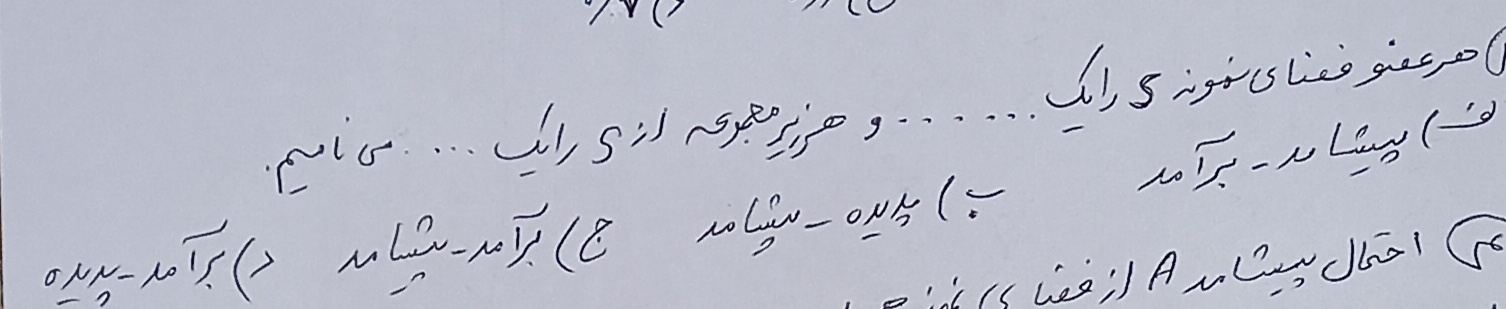 ) هر عضو فضای نمونه S را یک ....... و هر زیر مجموعه از S را یک .... می نامیم.
الف) پیشامد - برآمد ب) پدیده - پیشامد ج) برآمد - پیشامد د) برآمد - پدیده
احتمال پیشامد A از فضای